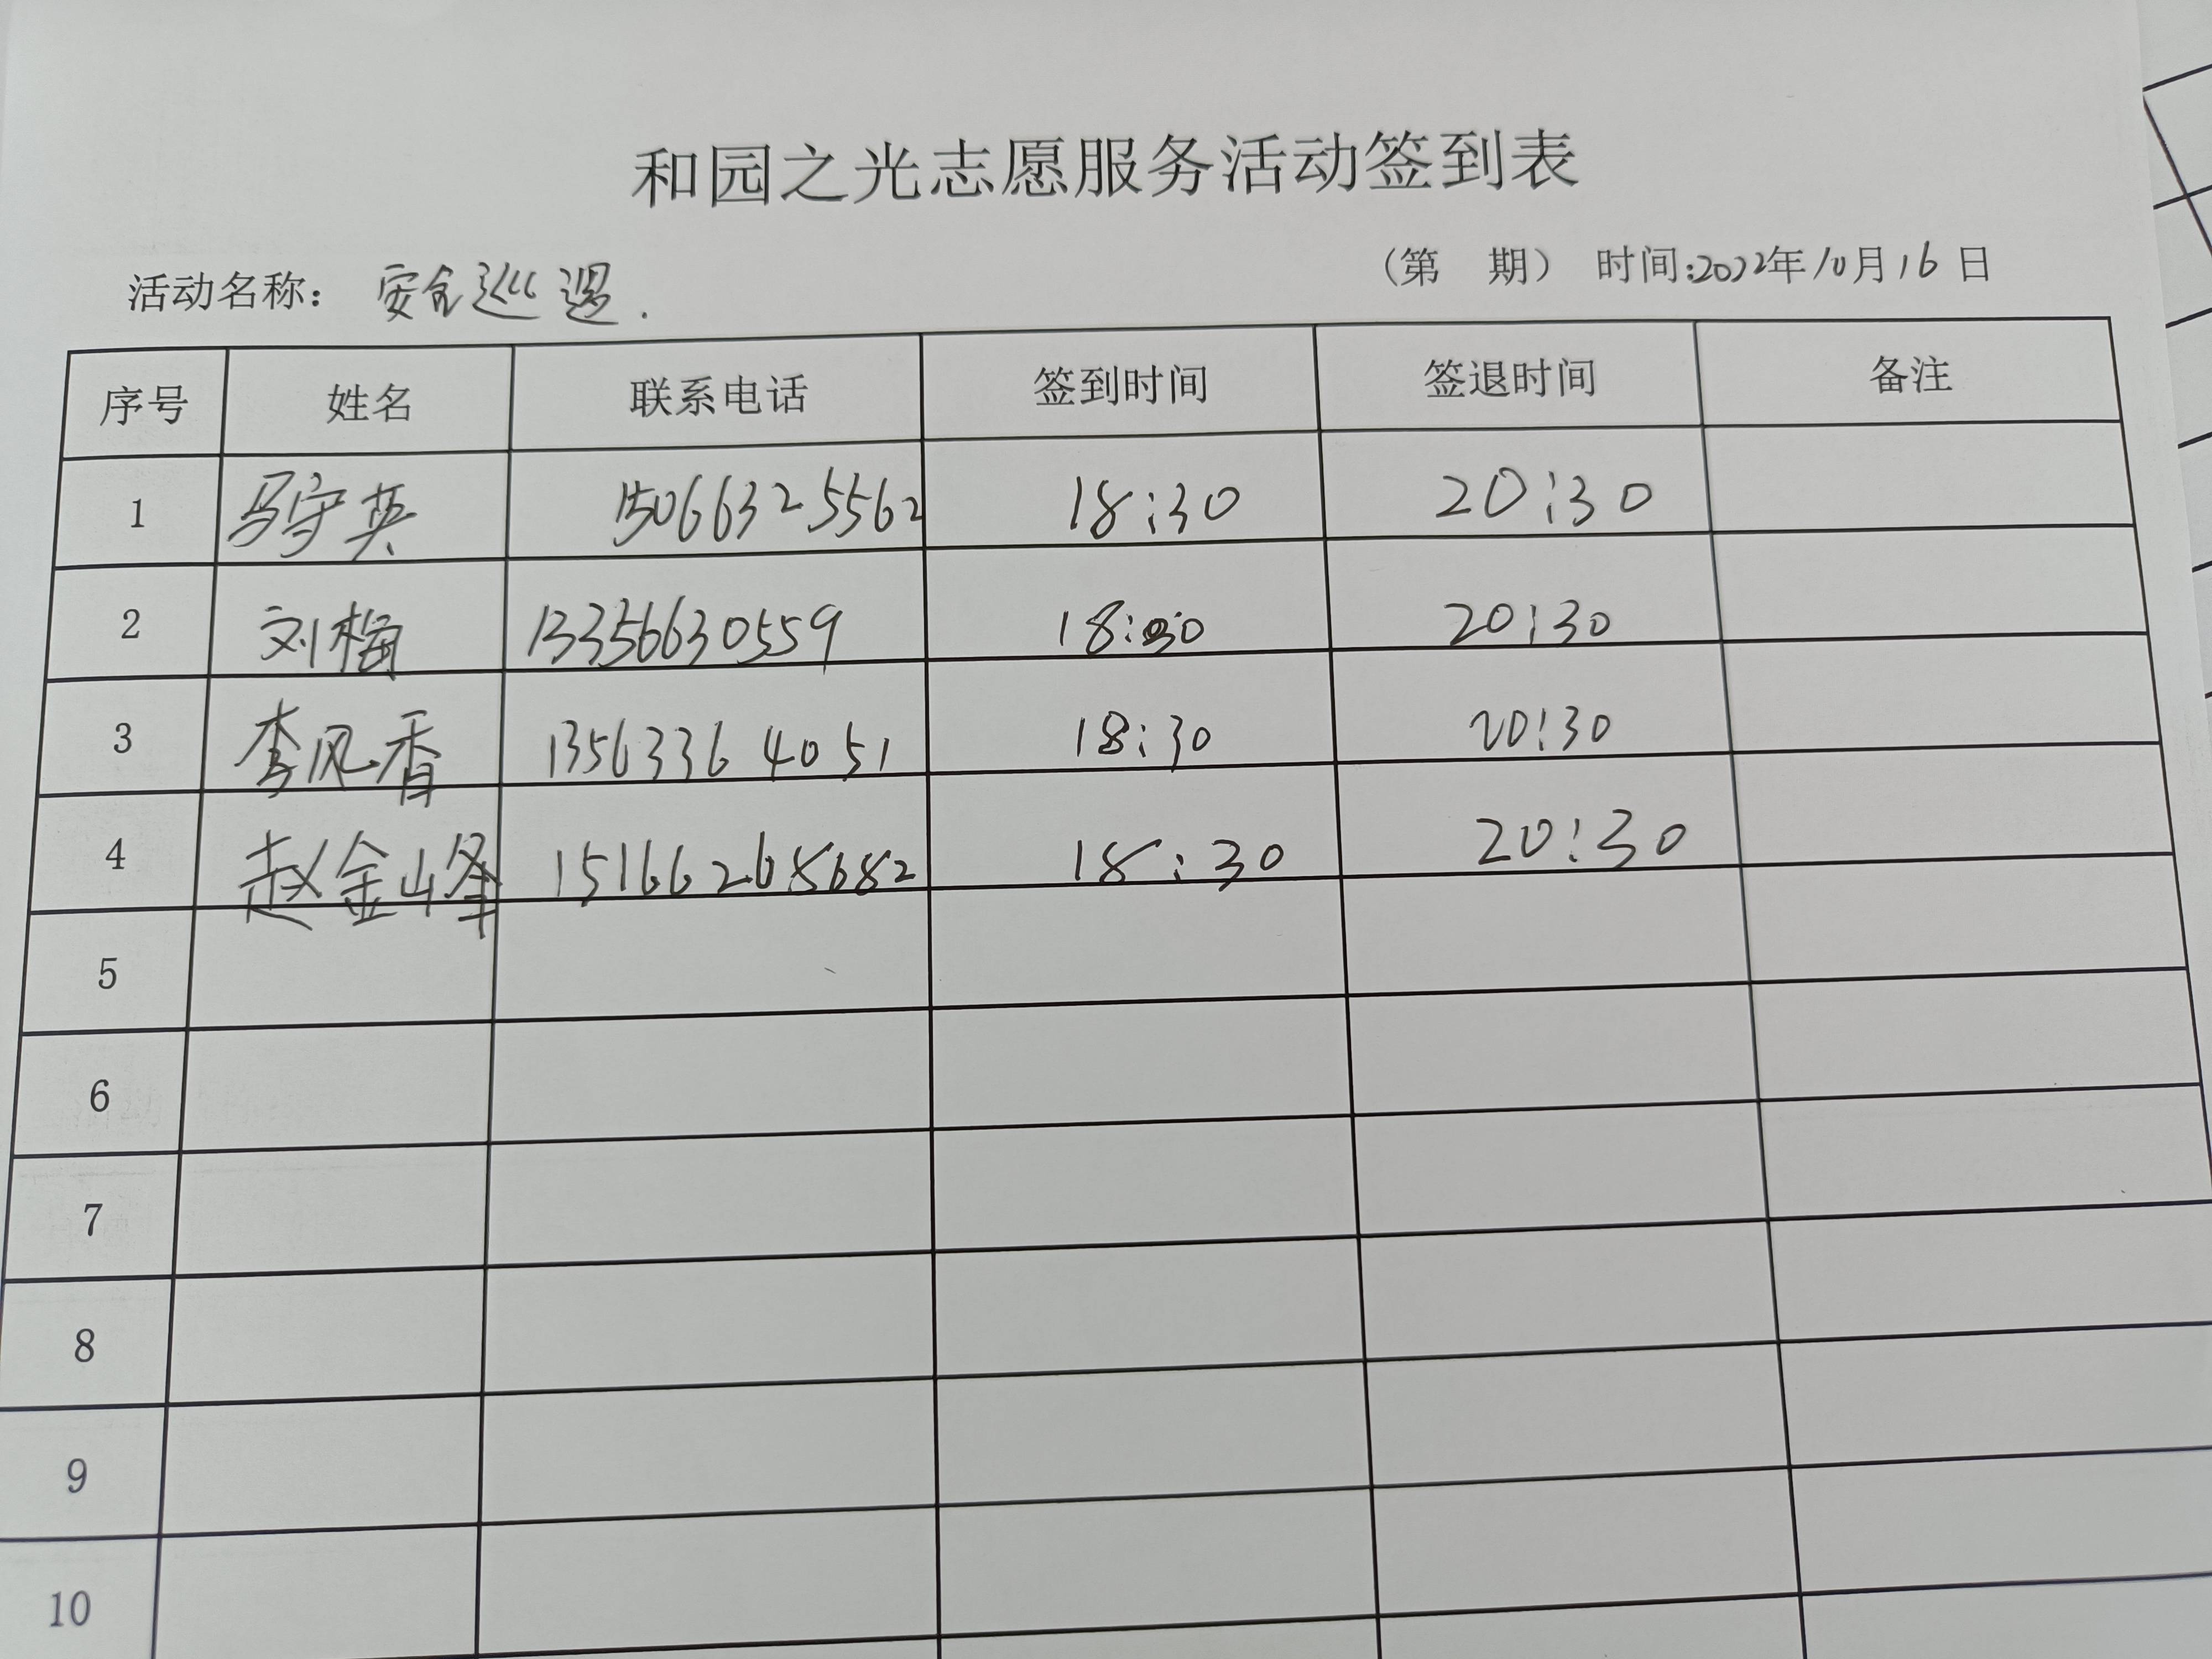 和园之光志愿服务活动签到表
活动名称： 安全巡逻. （第 期） 时间:2022年10月16日
序号 姓名 联系电话 签到时间 签退时间 备注
1 马守英 15066325562 18:30 20:30
2 刘梅 13356630559 18:30 20:30
3 李风香 13563364051 18:30 20:30
4 赵金峰 15166268682 18:30 20:30
5
6
7
8
9
10